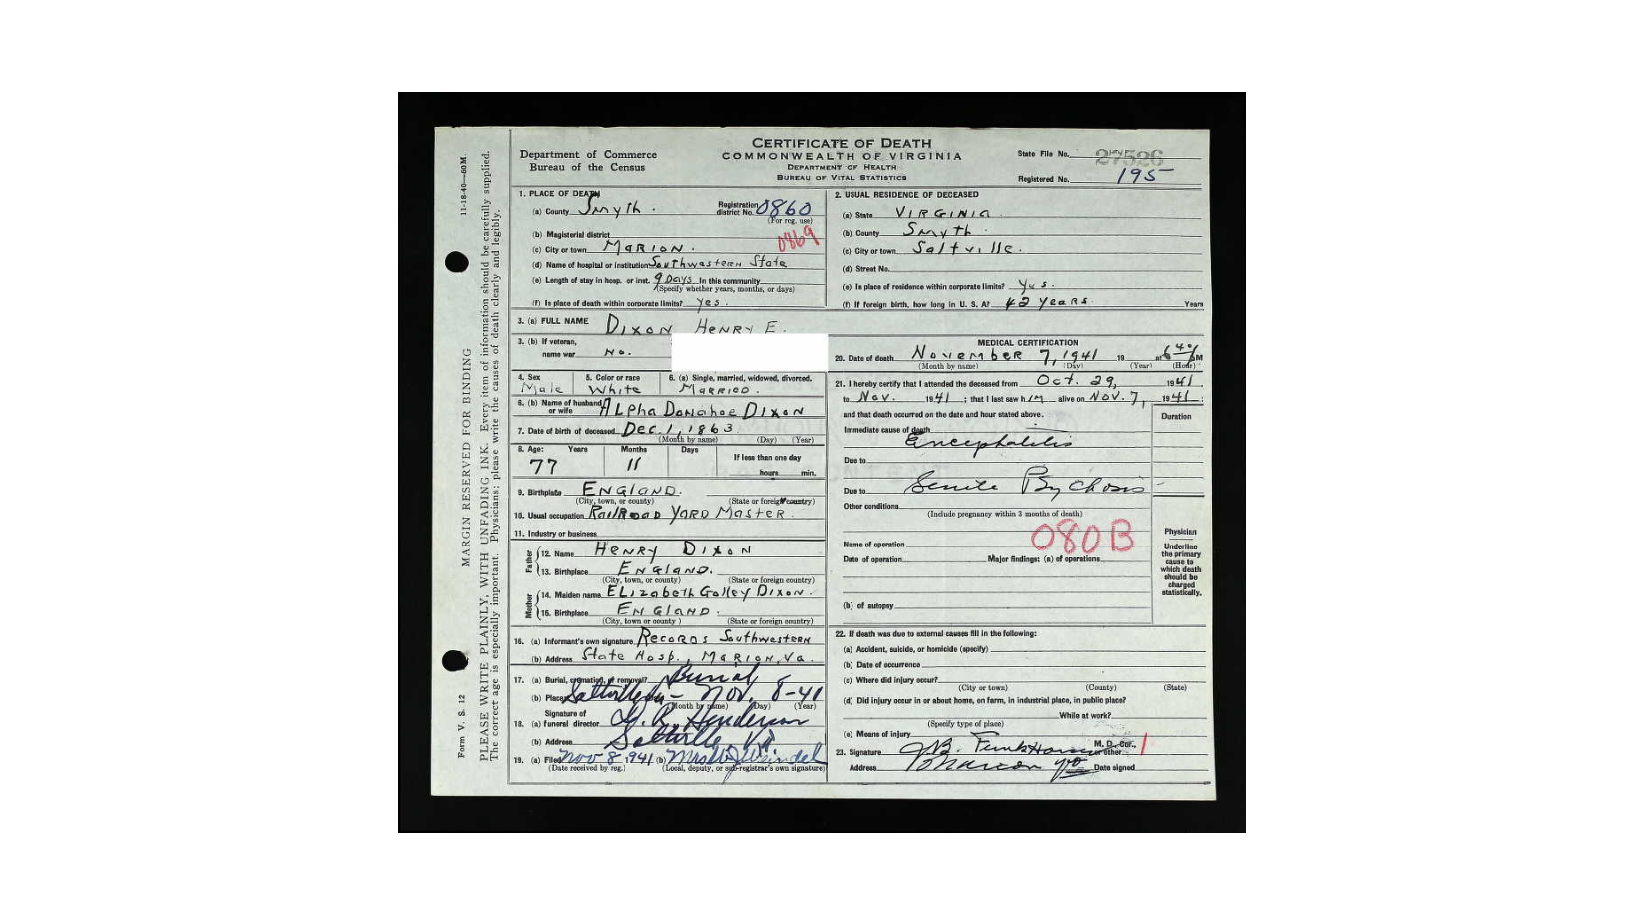 CERTIFICATE OF DEATH
COMMONWEALTH OF VIRGINIA
DEPARTMENT OF HEALTH
BUREAU OF VITAL STATISTICS
Department of Commerce
Bureau of the Census
State File No. 27526
Registered No. 195
11-18-40—50M.
MARGIN RESERVED FOR BINDING
PLEASE WRITE PLAINLY, WITH UNFADING INK. Every item of information should be carefully supplied.
The correct age is especially important. Physicians: please write the causes of death clearly and legibly.
Form V. S. 12
1. PLACE OF DEATH
(a) County Smyth.
Registration district No. 0860
(For reg. use)
0869
(b) Magisterial district
(c) City or town MARION.
(d) Name of hospital or institution Southwestern State
(e) Length of stay in hosp. or inst. 9 Days In this community
(Specify whether years, months, or days)
(f) Is place of death within corporate limits? Yes.
2. USUAL RESIDENCE OF DECEASED
(a) State VIRGINIA.
(b) County Smyth.
(c) City or town Saltville.
(d) Street No.
(e) Is place of residence within corporate limits? Yes.
(f) If foreign birth, how long in U. S. A? 42 years. Years
3. (a) FULL NAME DIXON HENRY E.
3. (b) If veteran, name war No.
4. Sex Male
5. Color or race White
6. (a) Single, married, widowed, divorced. MARRIED.
6. (b) Name of husband or wife Alpha Donahoe Dixon
7. Date of birth of deceased Dec. 1, 1863
(Month by name) (Day) (Year)
8. Age: Years 77 Months 11 Days
If less than one day
hours min.
9. Birthplace ENGLAND.
(City, town, or county) (State or foreign country)
10. Usual occupation RailRoad YARD Master.
11. Industry or business
Father
12. Name HENRY DIXON
13. Birthplace ENGLAND.
(City, town, or county) (State or foreign country)
Mother
14. Maiden name ELizabeth Golley Dixon.
15. Birthplace ENGLAND.
(City, town or county) (State or foreign country)
16. (a) Informant's own signature Records Southwestern
(b) Address State Hosp., MARION, Va.
17. (a) Burial, cremation, or removal? Burial
(b) Place Saltville Nov. 8-41
(Month by name) (Day) (Year)
Signature of
18. (a) funeral director Henderson
(b) Address Saltville, Va
19. (a) Filed Nov 8 1941 (b) Mrs
(Date received by reg.) (Local, deputy, or sub-registrar's own signature)
MEDICAL CERTIFICATION
20. Date of death November 7, 1941 19 at 6 40 M
(Month by name) (Day) (Year) (Hour)
21. I hereby certify that I attended the deceased from Oct. 29, 1941
to Nov. 1941; that I last saw him alive on Nov. 7, 1941;
and that death occurred on the date and hour stated above.
Duration
Immediate cause of death
Encephalitis
Due to
Due to Senile Psychosis
Other conditions
(Include pregnancy within 3 months of death)
080B
Name of operation
Date of operation Major findings: (a) of operations
(b) of autopsy
Physician
Underline
the primary
cause to
which death
should be
charged
statistically.
22. If death was due to external causes fill in the following:
(a) Accident, suicide, or homicide (specify)
(b) Date of occurrence
(c) Where did injury occur?
(City or town) (County) (State)
(d) Did injury occur in or about home, on farm, in industrial place, in public place?
While at work?
(Specify type of place)
(e) Means of injury
23. Signature M. D., Cor., other
Address Marion Va Date signed